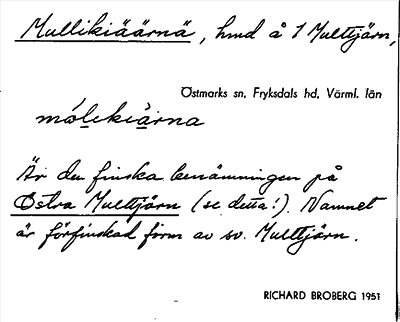 Mullikiäärnä, hmd å 1 Multtjärn,
Östmarks sn, Fryksdals hd, Värml. län
mólekiärna
Är den finska benämningen på
Östra Multtjärn (se detta!). Namnet
är förfinskad form av sv. Multtjärn.
RICHARD BROBERG 1951